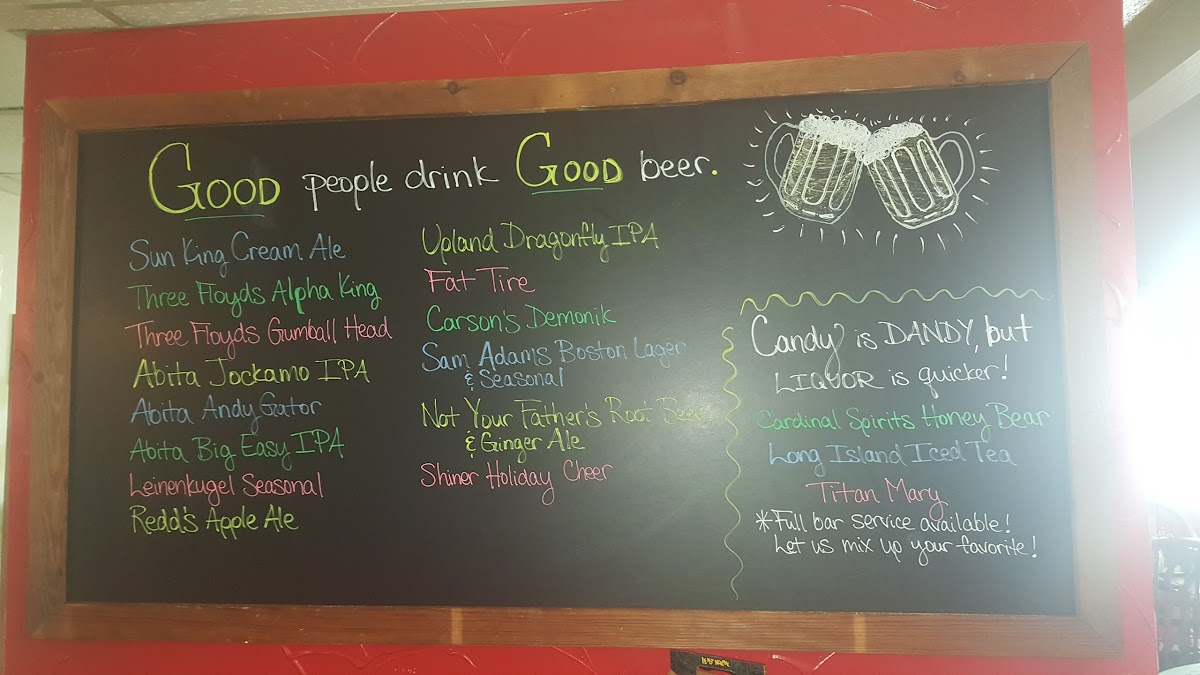 GOOD people drink GOOD beer.
Sun King Cream Ale
Three Floyds Alpha King
Three Floyds Gumball Head
Abita Jockamo IPA
Abita Andy Gator
Abita Big Easy IPA
Leinenkugel Seasonal
Redd's Apple Ale
Upland Dragonfly IPA
Fat Tire
Carson's Demonik
Sam Adams Boston Lager
& Seasonal
Not Your Father's Root Beer
& Ginger Ale
Shiner Holiday Cheer
Candy is DANDY, but
LIQUOR is quicker!
Cardinal Spirits Honey Bear
Long Island Iced Tea
Titan Mary
*Full bar service available!
Let us mix up your favorite!